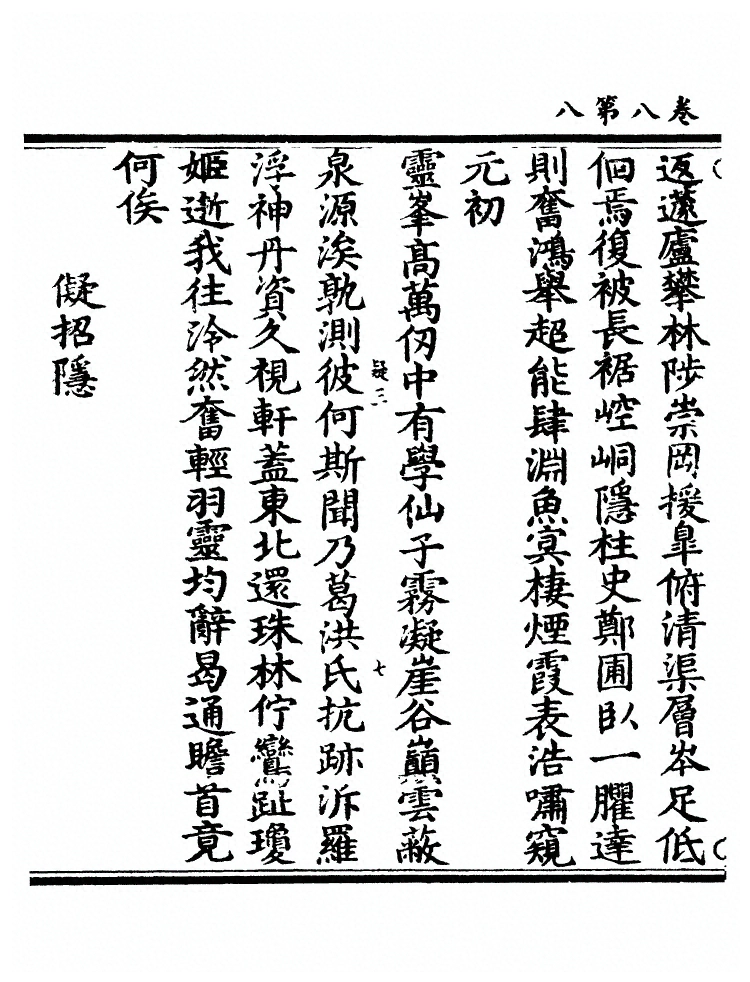 卷八第八
返蘧廬攀林陟崇岡援臯俯清渠層岑足低
佪焉復被長裾崆峒隱柱史鄭圃臥一臞達
則奮鴻舉超能肆淵魚㝠棲煙霞表浩嘯窺
元初
靈峯高萬仞中有學仙子霧凝崖谷巔雲蔽
疑三
七
泉源涘孰測彼何斯聞乃葛洪氏抗跡泝羅
浮神丹資久視軒蓋東北還珠林佇鸞趾瓊
姬逝我往泠然奮輕羽靈均辭曷通瞻首竟
何俟
儗招隱